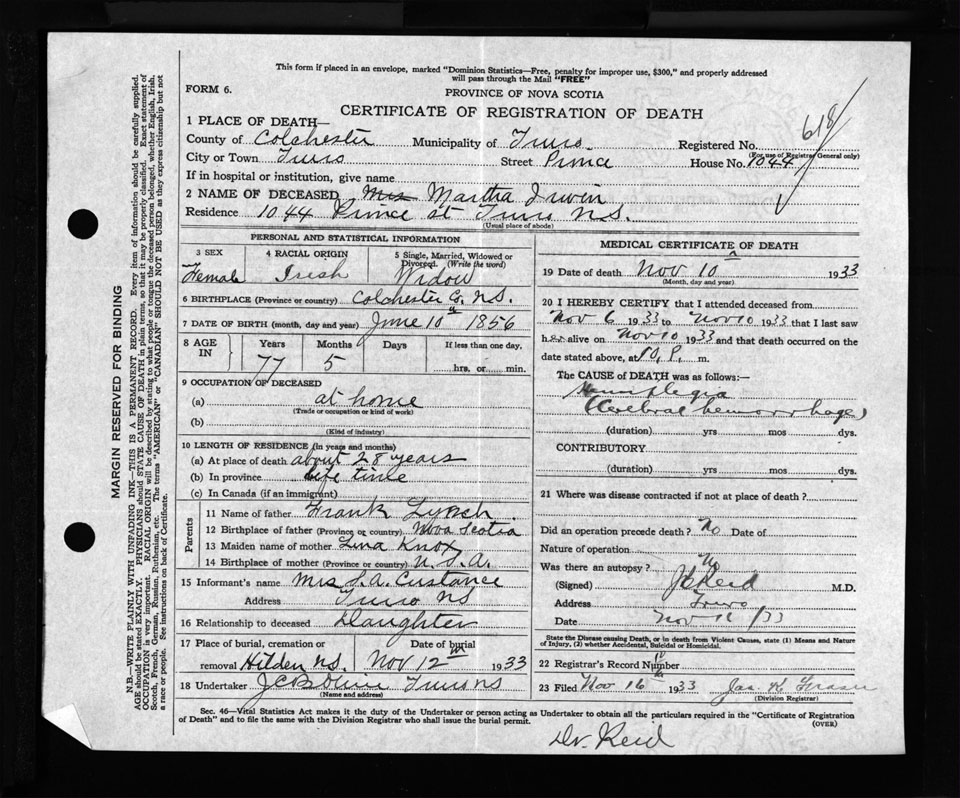 This form if placed in an envelope, marked "Dominion Statistics—Free, penalty for improper use, $300," and properly addressed
will pass through the Mail "FREE"
FORM 6.
PROVINCE OF NOVA SCOTIA
CERTIFICATE OF REGISTRATION OF DEATH
618
1 PLACE OF DEATH—
County of Colchester Municipality of Truro Registered No.
(For use of Registrar General only)
City or Town Truro Street Prince House No. 1044
If in hospital or institution, give name
2 NAME OF DECEASED Mrs Martha Irwin
Residence 1044 Prince st Truro N.S.
(Usual place of abode)
PERSONAL AND STATISTICAL INFORMATION
3 SEX 4 RACIAL ORIGIN 5 Single, Married, Widowed or
Divorced. (Write the word)
Female Irish Widow
6 BIRTHPLACE (Province or country) Colchester Co. N.S.
7 DATE OF BIRTH (month, day and year) June 10th 1856
8 AGE IN Years Months Days If less than one day,
77 5 hrs. or min.
9 OCCUPATION OF DECEASED
(a) at home
(Trade or occupation or kind of work)
(b)
(Kind of industry)
10 LENGTH OF RESIDENCE (in years and months)
(a) At place of death about 28 years
(b) In province life time
(c) In Canada (if an immigrant)
Parents
11 Name of father Frank Lynch
12 Birthplace of father (Province or country) Nova Scotia
13 Maiden name of mother Lina Knox
14 Birthplace of mother (Province or country) U.S.A.
15 Informant's name Mrs Custance
Address Truro NS
16 Relationship to deceased Daughter
17 Place of burial, cremation or Date of burial
removal Hilden N.S. Nov 12th 1933
18 Undertaker Truro NS
(Name and address)
MEDICAL CERTIFICATE OF DEATH
19 Date of death Nov 10 1933
(Month, day and year)
20 I HEREBY CERTIFY that I attended deceased from
Nov 6 1933 to Nov 10 1933 that I last saw
her alive on Nov 10 1933 and that death occurred on the
date stated above, at 10, P. m.
The CAUSE of DEATH was as follows:—
Hemiplegia
(Cerebral hemorrhage)
(duration) yrs mos dys.
CONTRIBUTORY
(duration) yrs mos dys.
21 Where was disease contracted if not at place of death?
Did an operation precede death? No Date of
Nature of operation
Was there an autopsy? No
(Signed) Reid M.D.
Address Truro
Date Nov /33
State the Disease causing Death, or in death from Violent Causes, state (1) Means and Nature
of Injury, (2) whether Accidental, Suicidal or Homicidal.
22 Registrar's Record Number
23 Filed Nov 16 1933 Jas. K. Fraser
(Division Registrar)
Sec. 46—Vital Statistics Act makes it the duty of the Undertaker or person acting as Undertaker to obtain all the particulars required in the "Certificate of Registration
of Death" and to file the same with the Division Registrar who shall issue the burial permit.
(OVER)
Dr. Reid
MARGIN RESERVED FOR BINDING
N.B.—WRITE PLAINLY WITH UNFADING INK—THIS IS A PERMANENT RECORD. Every item of information should be carefully supplied.
AGE should be stated EXACTLY. PHYSICIANS should STATE CAUSE OF DEATH in plain terms, so that it may be properly classified. Exact statement of
OCCUPATION is very important. RACIAL ORIGIN will be described by stating to what people or tongue the deceased person belonged, whether English, Irish,
Scotch, French, German, Russian, Ruthenian, etc. The terms "AMERICAN" or "CANADIAN" SHOULD NOT BE USED as they express citizenship but not
a race or people. See instructions on back of Certificate.